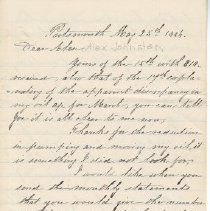 Portsmouth May 25th 1884.
Dear Alex Johnston,
Yours of the 15th with $10
received, also that of the 17th expla-
natory of the apparent discrepancy in
my oil a/c for March, you can tell
for it is all clear to me now,
Thanks for the reduction
in pumping and moving my oil, it
is something I did not look for,
I would like when you
send the monthly statements
that you would give the number